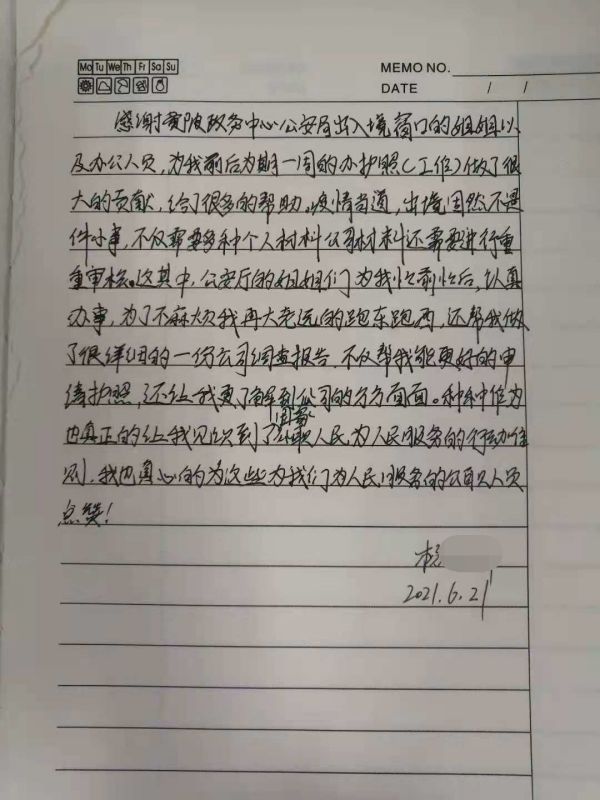 Mo Tu We Th Fr Sa Su
MEMO NO.
DATE / /
感谢黄陂政务中心公安局出入境窗口的姐姐以
及办公人员,为我前后为期一周的办护照(工作)做了很
大的贡献,给了很多的帮助。疫情当道,出境固然不是
件小事,不仅需要多种个人材料公司材料还需要进行重
重审核。这其中,公安厅的姐姐们为我忙前忙后,认真
办事,为了不麻烦我再大老远的跑东跑西,还帮我做
了很详细的一份公司调查报告,不仅帮我能更好的申
请护照,还让我更了解到公司的方方面面。种种作为
也真正的让我见识到了国家公职人民,为人民服务的行动准
则,我也真心的为这些为我们为人民服务的公职人员
点赞!
2021.6.21